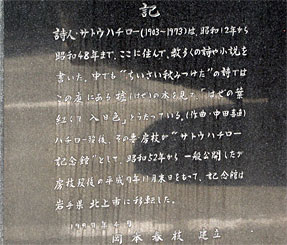 記
詩人・サトウハチロー(1903-1973)は、昭和12年から
昭和48年まで、ここに住んで、数多くの詩や小説を
書いた。中でも“ちいさい秋みつけた”の詩では
この庭にある櫨(はぜ)の木を見て“はぜの葉
紅くて 入日色”とうたっている。(作曲・中田喜直)
ハチロー没後、その妻房枝が“サトウハチロー
記念館”として、昭和52年から一般公開したが
房枝没後の平成9年11月末日をもって、記念館は
岩手県 北上市に移転した。
岡本 枝 建立